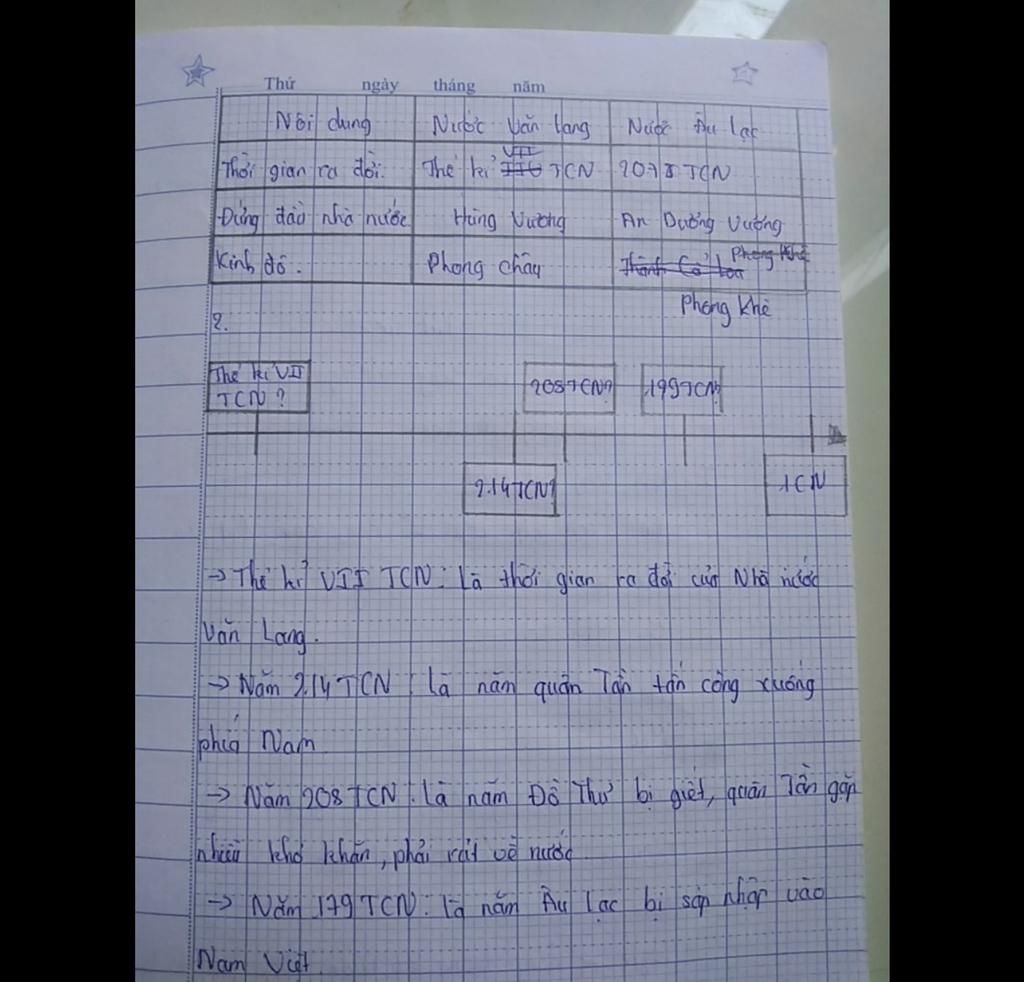 Thứ ngày tháng năm
Nội dung Nước Văn Lang Nước Âu Lạc
Thời gian ra đời. Thế kỉ VII TCN 2078 TCN
Đứng đầu nhà nước Hùng Vương An Dương Vương
Kinh đô. Phong châu Thành Cổ Loa Phong Khê
Phong Khê
2.
Thế kỉ VII 208 TCN? 179 TCN?
TCN?
214 TCN? 1CN
→ Thế kỉ VII TCN: Là thời gian ra đời của Nhà nước
Văn Lang.
→ Năm 214 TCN: Là năm quân Tần tấn công xuống
phía Nam
→ Năm 208 TCN: Là năm Đồ Thư bị giết, quân Tần gặp
nhiều khó khăn, phải rút về nước
→ Năm 179 TCN: là năm Âu Lạc bị sáp nhập vào
Nam Việt.